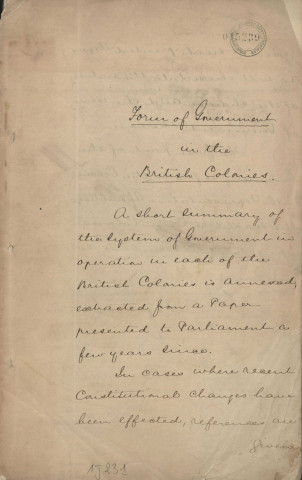 015239
Form of Government
in the
British Colonies.
A short summary of
the System of Government in
operation in each of the
British Colonies is annexed,
extracted from a Paper
presented to Parliament a
few years since.
In cases where recent
Constitutional Changes have
been effected, references are
given
15231